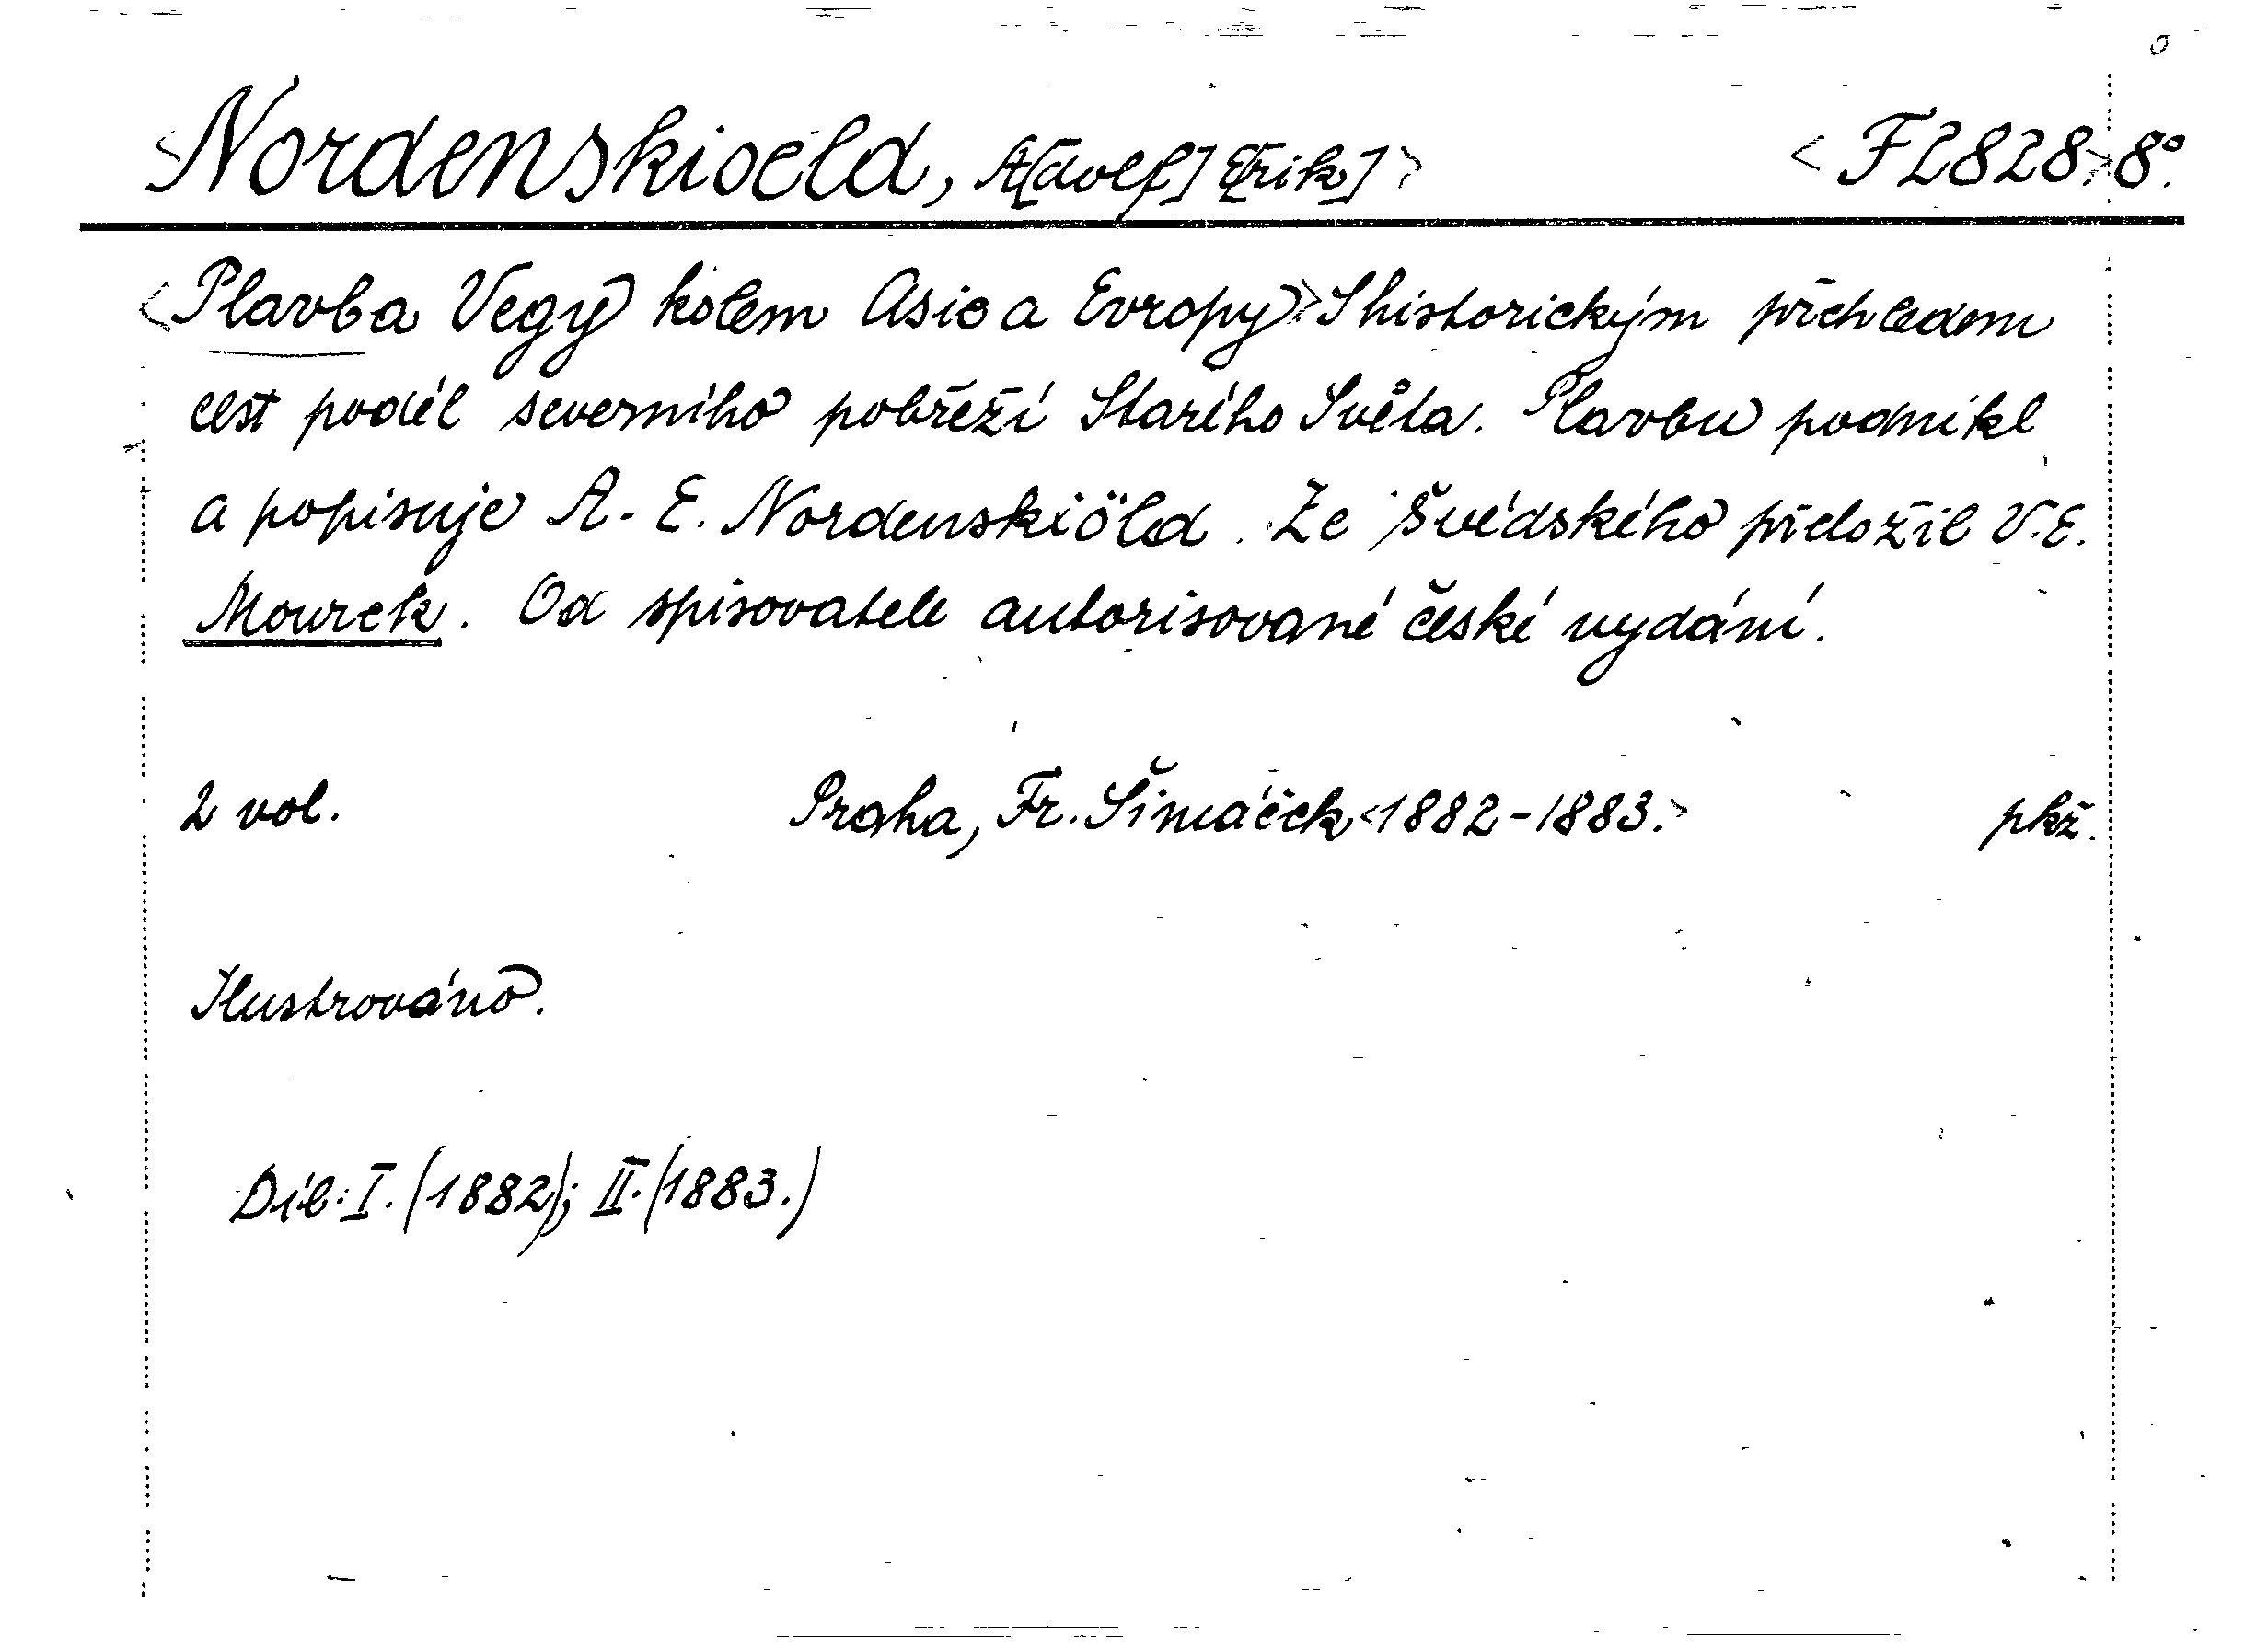 <Nordenskioeld, A[dolf] E[rik]> <F2828.> 8°.
<Plavba Vegy kolem Asie a Evropy> S historickým přehledem
cest podél severního pobřeží Starého Světa. Plavbu podnikl
a popisuje A. E. Nordenskiöld. Ze švédského přeložil V. E.
Mourek. Od spisovatele autorisované české vydání.
2 vol. Praha, Fr. Šimáček <1882-1883.> pkž.
Ilustrováno.
Díl: I. (1882); II. (1883.)